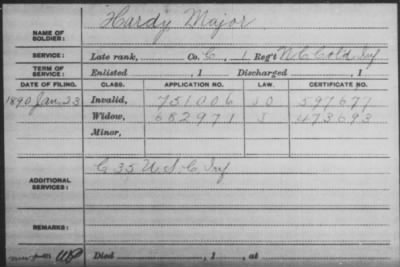 Hardy Major
NAME OF SOLDIER:
SERVICE: Late rank, Co. C, 1 Reg't N.C. Cold Inf
TERM OF SERVICE: Enlisted , 1 Discharged , 1
DATE OF FILING. CLASS. APPLICATION NO. LAW. CERTIFICATE NO.
1890 Jan. 23 Invalid, 751006 597677
Widow, 682971 473693
Minor,
C 35 U.S.C. Inf
ADDITIONAL SERVICES:
REMARKS:
Died , 1 , at